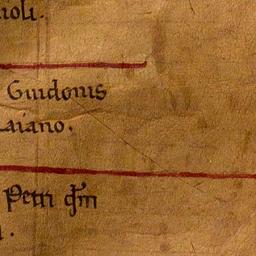 ioli.
Guidonis
aiano.
Petri qm
.